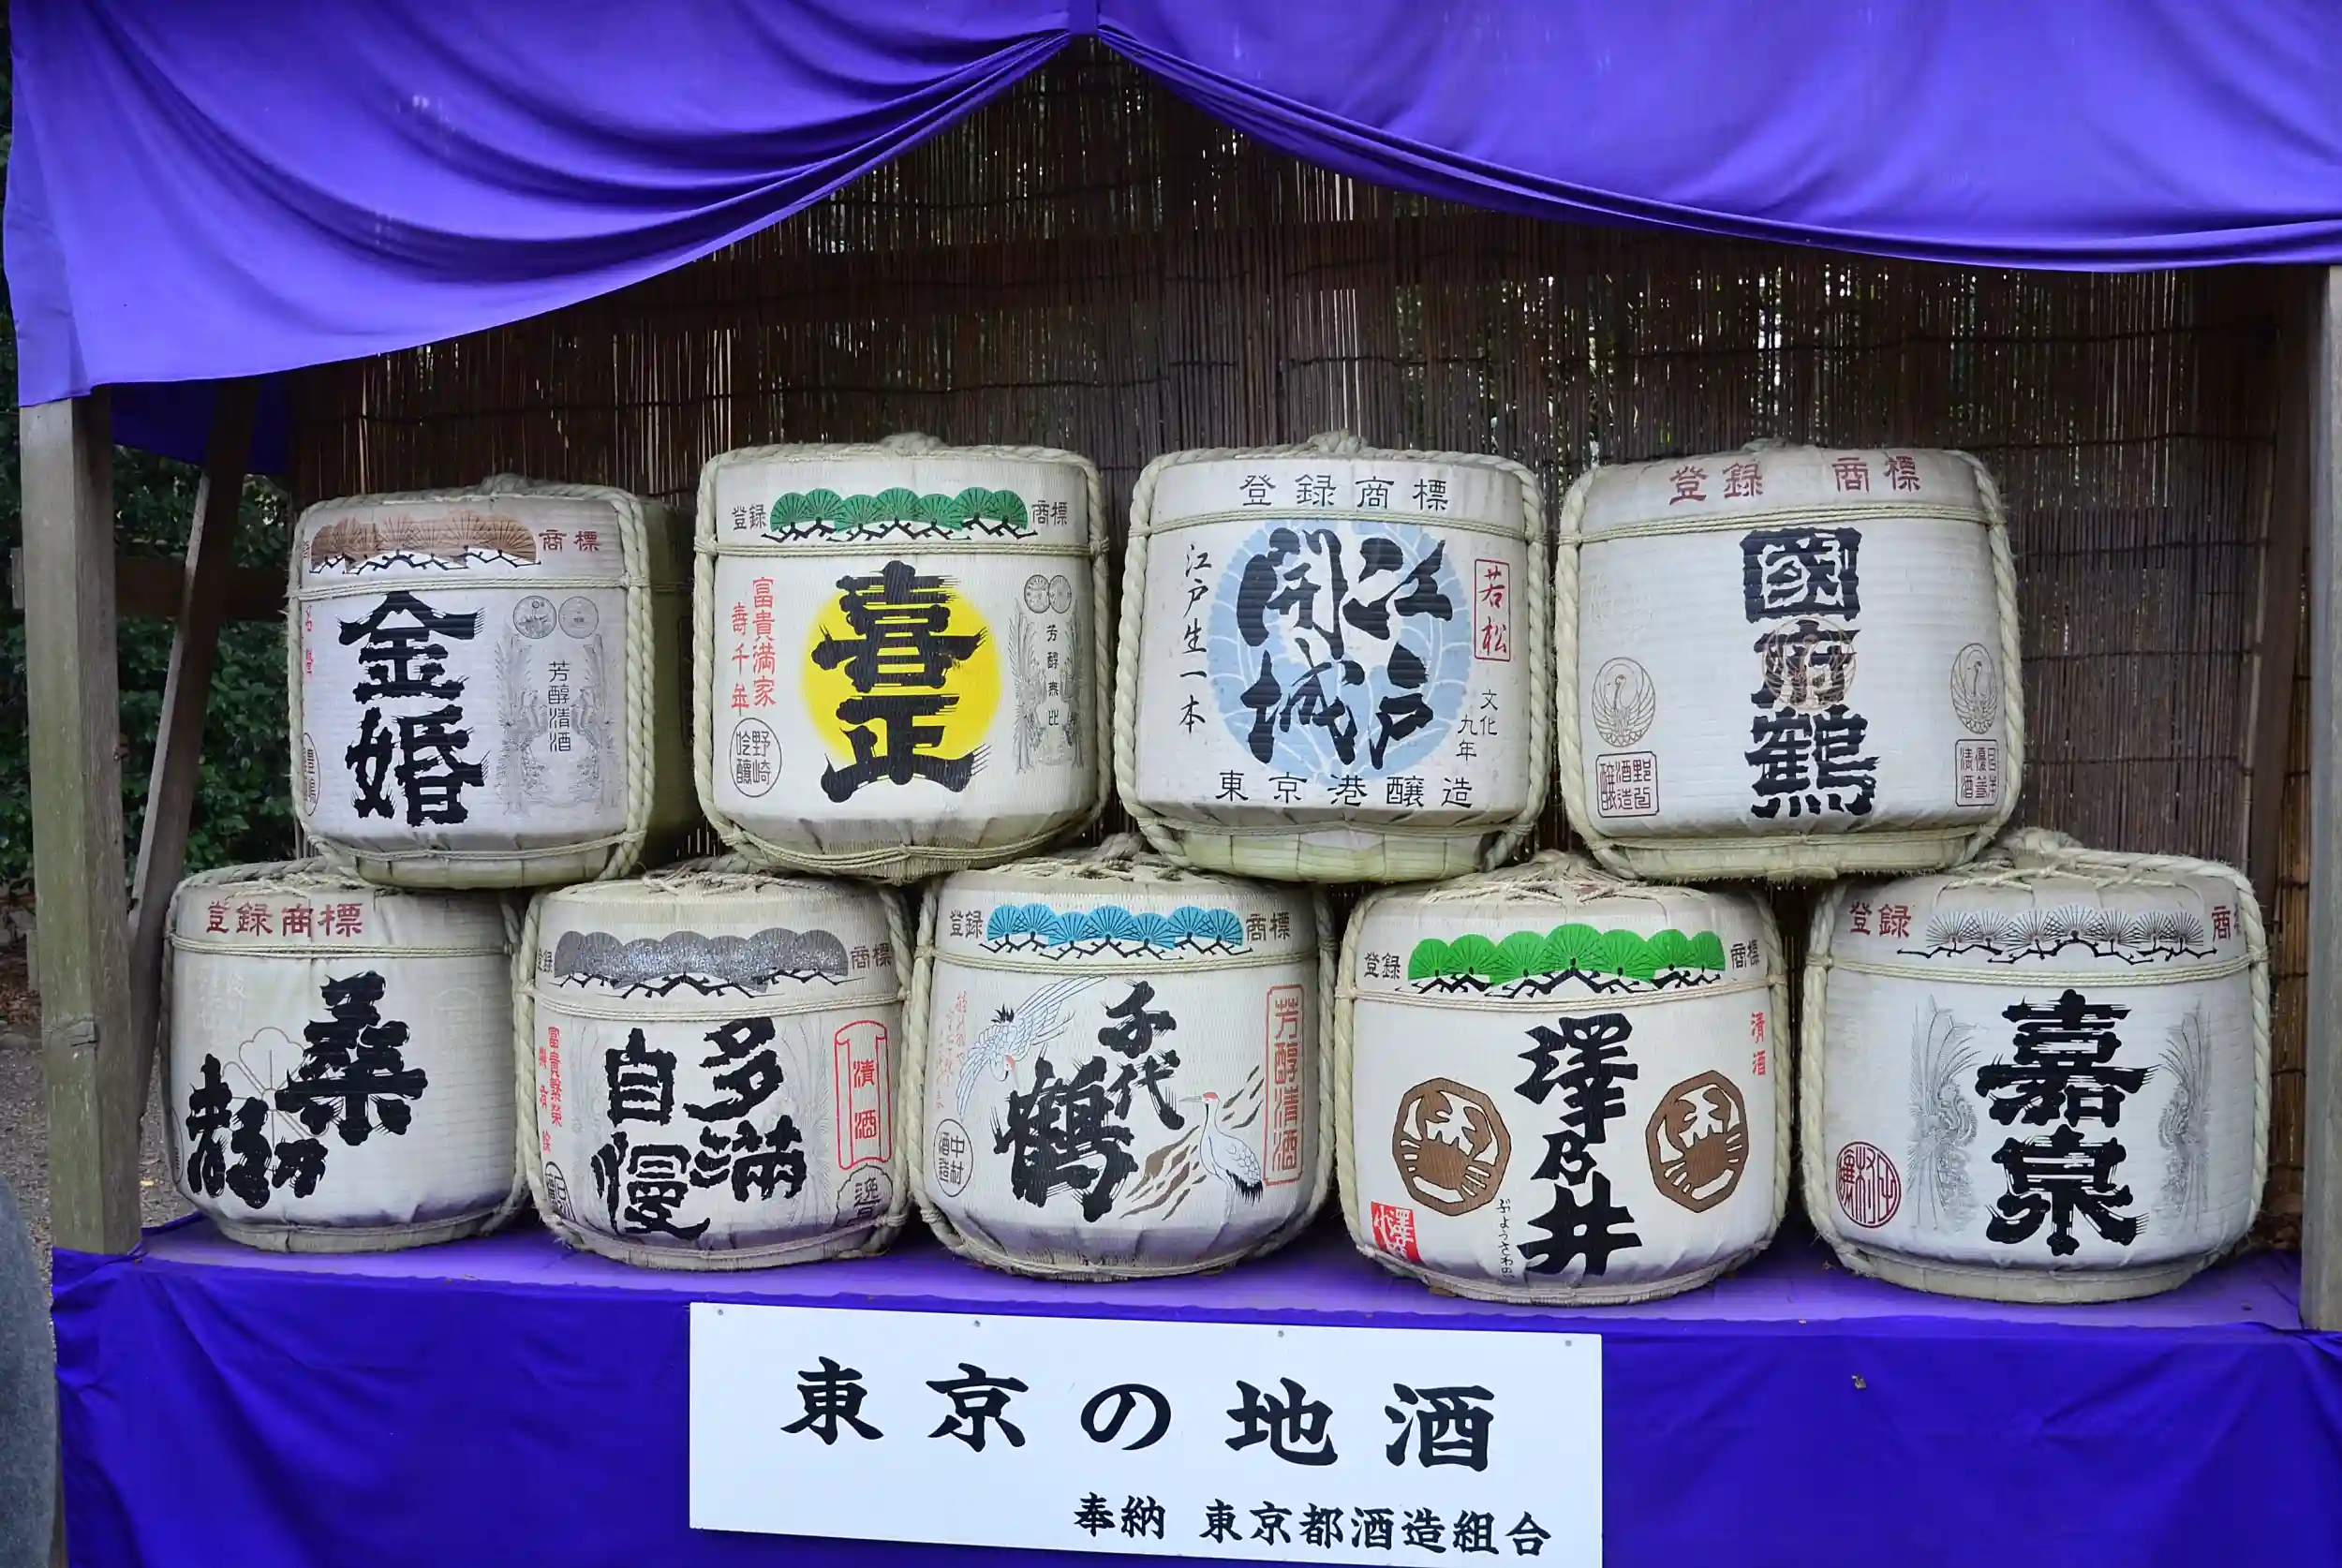 商標
金婚
芳醇清酒
登録 商標
喜正
富貴満家
壽千年
野崎
吟醸
芳醇
登録商標
江戸
開城
江戸生一本
若松
文化
九年
東京港醸造
登録 商標
國府鶴
野口
酒造
醸
清酒
登録商標
桑乃都
登録 商標
多満
自慢
清酒
登録 商標
千代
鶴
芳醇清酒
中村
酒造
登録 商標
澤乃井
清酒
澤乃井
登録 商
嘉泉
東京の地酒
奉納 東京都酒造組合